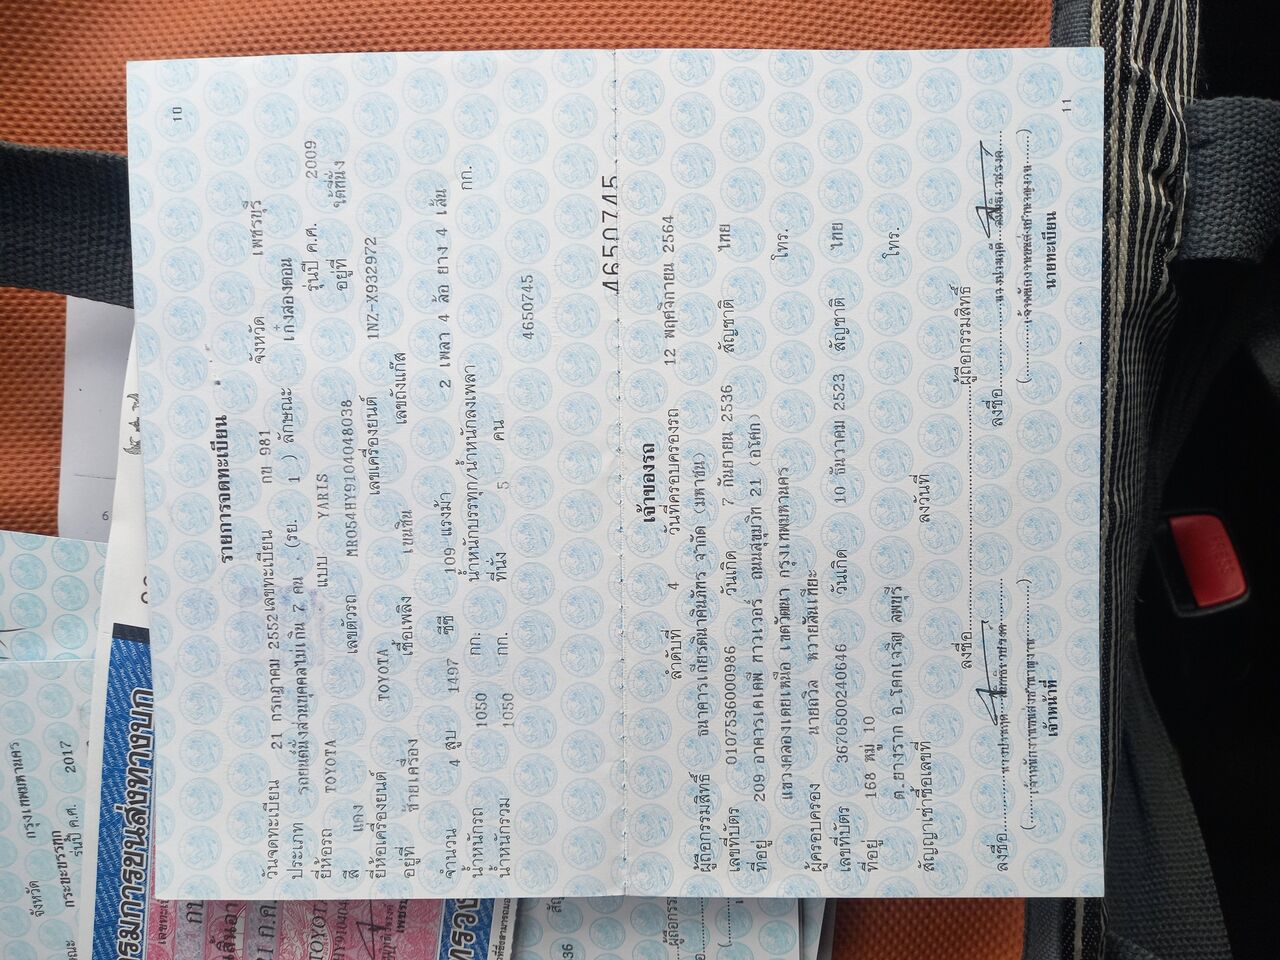 10
รายการจดทะเบียน
วันจดทะเบียน 21 กรกฎาคม 2552 เลขทะเบียน กข 981 จังหวัด เพชรบุรี
ประเภท รถยนต์นั่งส่วนบุคคลไม่เกิน 7 คน (รย. 1 ) ลักษณะ เก๋งสองตอน
ยี่ห้อรถ TOYOTA แบบ YARIS รุ่นปี ค.ศ. 2009
สี แดง เลขตัวรถ MR054HY9104048038 อยู่ที่ ใต้ที่นั่ง
ยี่ห้อเครื่องยนต์ TOYOTA เลขเครื่องยนต์ 1NZ-X932972
อยู่ที่ ซ้ายเครื่อง เชื้อเพลิง เบนซิน เลขถังแก๊ส
จำนวน 4 สูบ 1497 ซีซี 109 แรงม้า 2 เพลา 4 ล้อ ยาง 4 เส้น
น้ำหนักรถ 1050 กก. น้ำหนักบรรทุก/น้ำหนักลงเพลา กก.
น้ำหนักรวม 1050 กก. ที่นั่ง 5 คน
4650745
4650745
เจ้าของรถ
ลำดับที่ 4 วันที่ครอบครองรถ 12 พฤศจิกายน 2564
ผู้ถือกรรมสิทธิ์ ธนาคารเกียรตินาคินภัทร จำกัด (มหาชน)
เลขที่บัตร 0107536000986 วันเกิด 7 กันยายน 2536 สัญชาติ ไทย
ที่อยู่ 209 อาคารเคเคพี ทาวเวอร์ ถนนสุขุมวิท 21 (อโศก)
แขวงคลองเตยเหนือ เขตวัฒนา กรุงเทพมหานคร โทร.
ผู้ครอบครอง นายถวิล หวายสันเทียะ
เลขที่บัตร 3670500240646 วันเกิด 10 ธันวาคม 2523 สัญชาติ ไทย
ที่อยู่ 168 หมู่ 10
ต.ยางราก อ.โคกเจริญ ลพบุรี โทร.
สัญญาเช่าซื้อเลขที่ ลงวันที่
ลงชื่อ ผู้ถือกรรมสิทธิ์
ลงชื่อ ลงชื่อ
(เจ้าพนักงานขนส่งชำนาญงาน) (เจ้าพนักงานขนส่งชำนาญงาน)
เจ้าหน้าที่ นายทะเบียน
11
จังหวัด กรุงเทพมหานคร
กระบะบรรทุก
รุ่นปี ค.ศ. 2017
กรมการขนส่งทางบก
TOYOTA
6